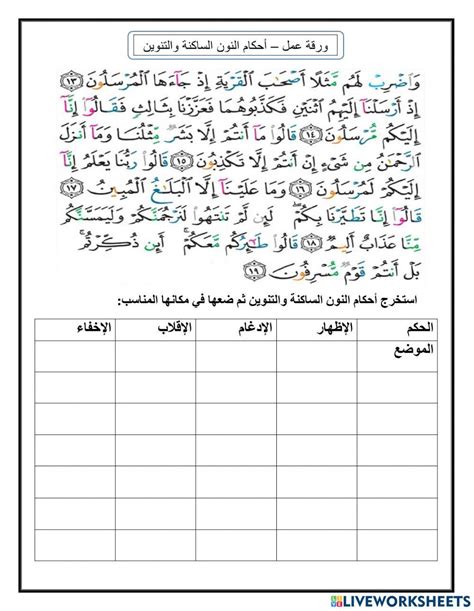 ورقة عمل – أحكام النون الساكنة والتنوين
وَاضْرِبْ لَهُم مَّثَلًا أَصْحَابَ الْقَرْيَةِ إِذْ جَاءَهَا الْمُرْسَلُونَ ١٣
إِذْ أَرْسَلْنَا إِلَيْهِمُ اثْنَيْنِ فَكَذَّبُوهُمَا فَعَزَّزْنَا بِثَالِثٍ فَقَالُوا إِنَّا
إِلَيْكُم مُّرْسَلُونَ ١٤ قَالُوا مَا أَنتُمْ إِلَّا بَشَرٌ مِّثْلُنَا وَمَا أَنزَلَ
الرَّحْمَٰنُ مِن شَيْءٍ إِنْ أَنتُمْ إِلَّا تَكْذِبُونَ ١٥ قَالُوا رَبُّنَا يَعْلَمُ إِنَّا
إِلَيْكُمْ لَمُرْسَلُونَ ١٦ وَمَا عَلَيْنَا إِلَّا الْبَلَاغُ الْمُبِينُ ١٧
قَالُوا إِنَّا تَطَيَّرْنَا بِكُمْ لَئِن لَّمْ تَنتَهُوا لَنَرْجُمَنَّكُمْ وَلَيَمَسَّنَّكُم
مِّنَّا عَذَابٌ أَلِيمٌ ١٨ قَالُوا طَائِرُكُم مَّعَكُمْ أَئِن ذُكِّرْتُم
بَلْ أَنتُمْ قَوْمٌ مُّسْرِفُونَ ١٩
استخرج أحكام النون الساكنة والتنوين ثم ضعها في مكانها المناسب:
الحكم الإظهار الإدغام الإقلاب الإخفاء
الموضع
LIVEWORKSHEETS